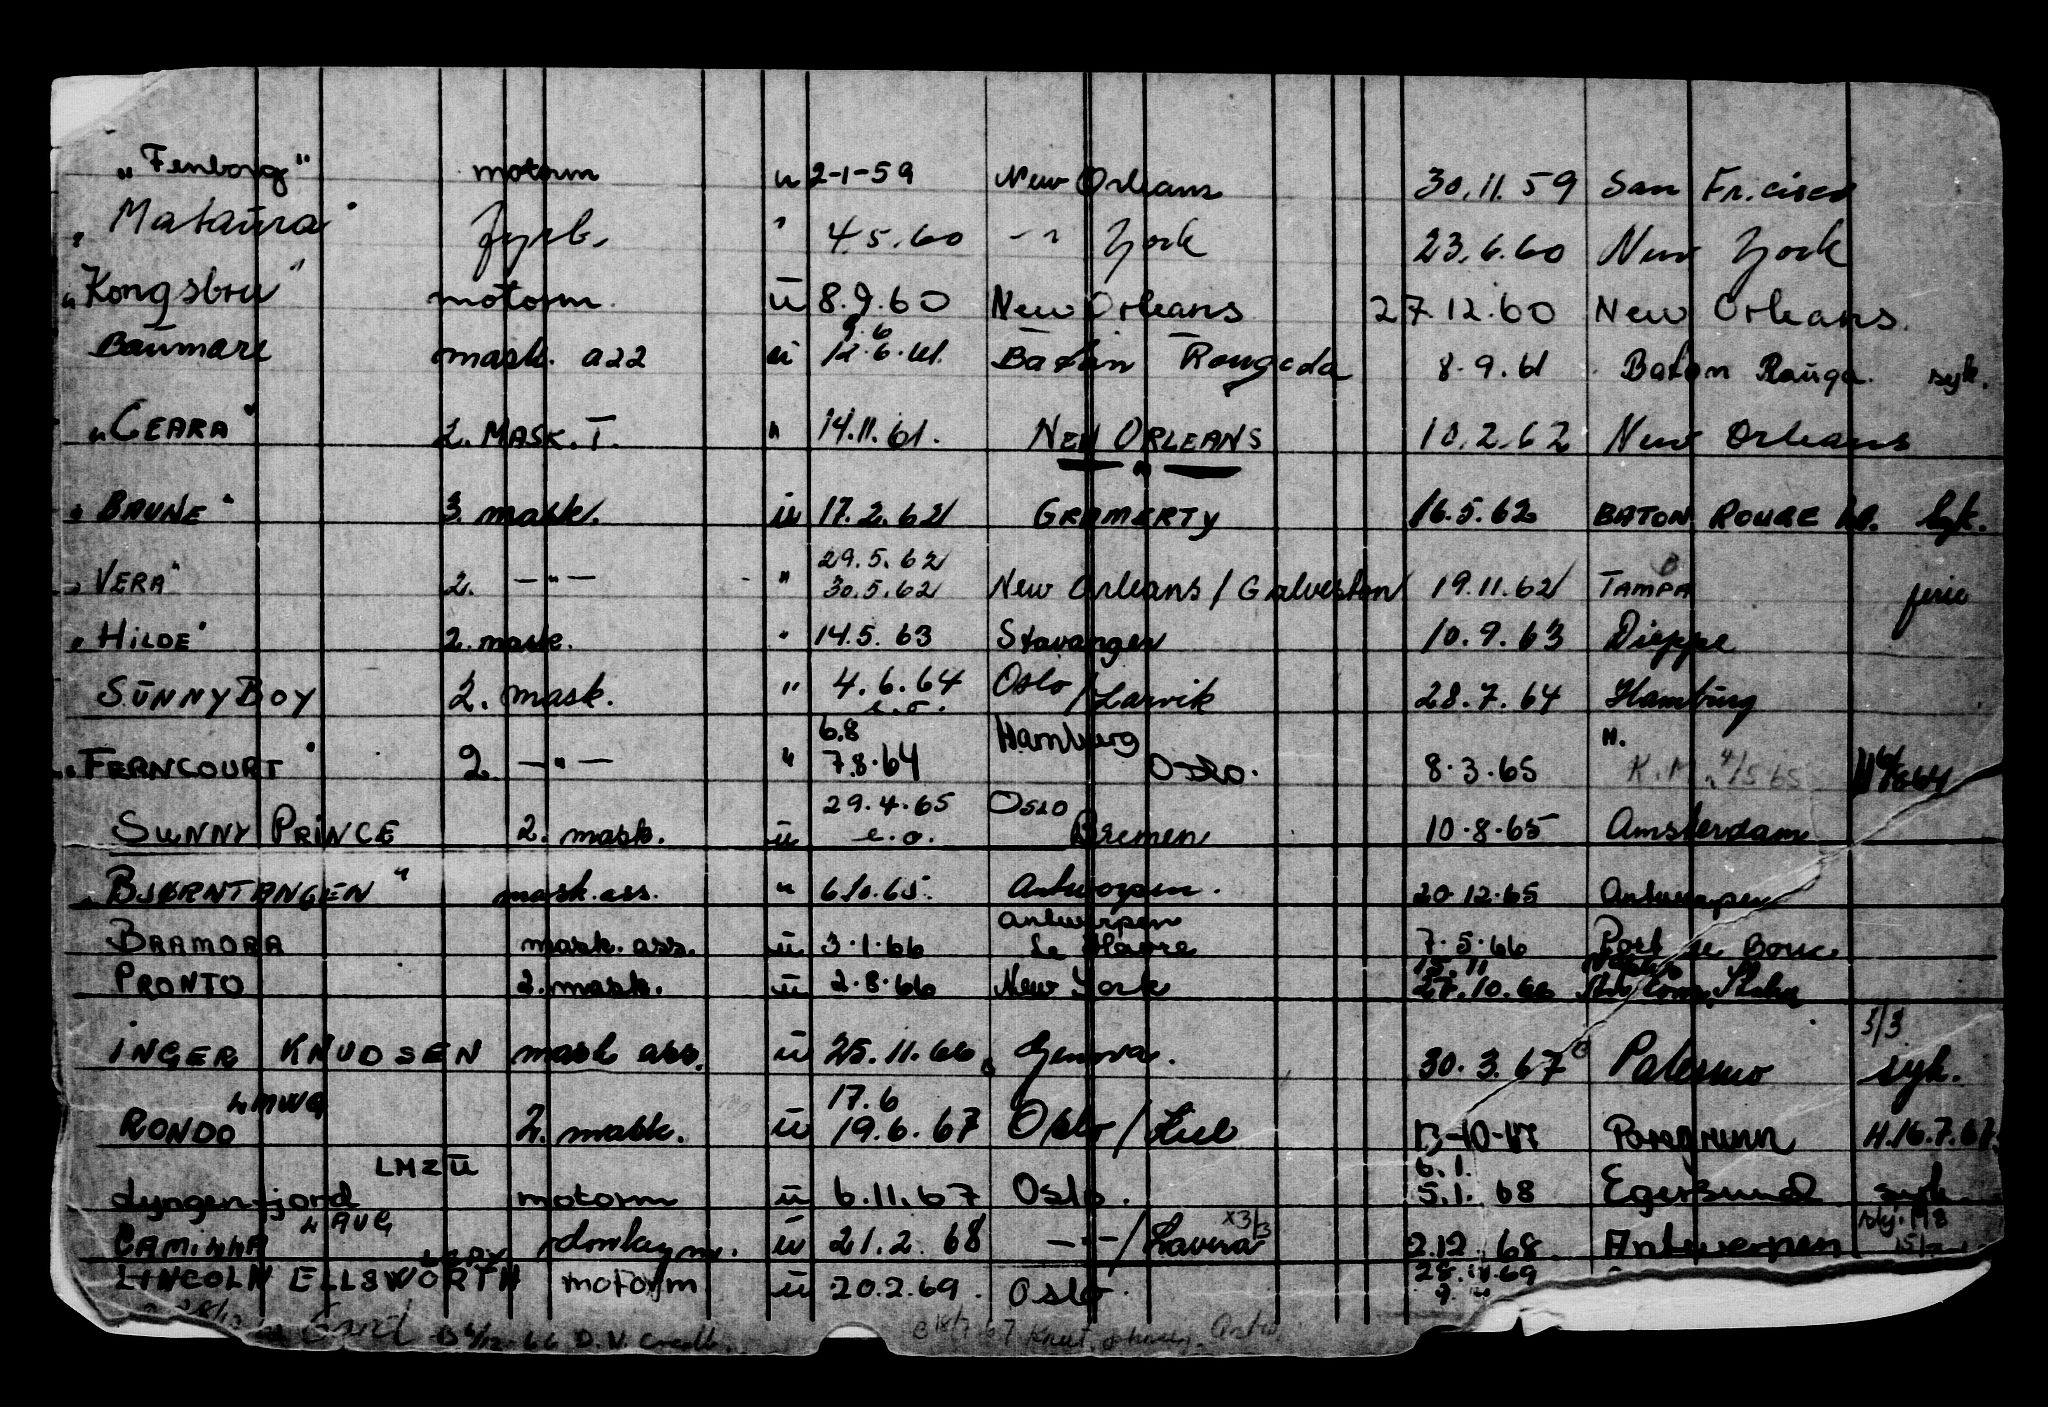 „Fernborg" motorm u 2-1-59 New Orleans 30.11.59 San Fr.cisco
„Mataura" fyrb. " 4.5.60 -"- York 23.6.60 New York
„Kongsbru" motorm. ü 8.9.60 New Orleans 27.12.60 New Orleans.
9.6
Baumare mask. a22 ü 12.6.61. Baton Rougeda 8.9.61 Baton Rouga. syk.
„CEARA" 2. MASK. T. " 14.11.61. NEW ORLEANS 10.2.62 New Orleans
"
„BAUNE" 3. mask. ü 17.2.62 GRAMERTY 16.5.62 BATON ROUGE La. Syk.
29.5.62
„VERA" 2. —"— " 30.5.62 New Orleans / Galveston 19.11.62 TAMPA ferie
„HILDE" 2. mask. " 14.5.63 Stavanger 10.9.63 Dieppe
SUNNY BOY 2. mask. " 4.6.64 Oslo / Larvik 28.7.64 Hamburg
e.o.
6.8 Hamburg H.
„FERNCOURT" 2. —"— " 7.8.64 Oslo. 8.3.65 K.M. 4/5 65
29.4.65 Oslo
SUNNY PRINCE 2. mask. ü e.o. Bremen 10.8.65 Amsterdam
„BJØRNTANGEN" mask.ass. " 6.10.65. Antwerpen. 20.12.65 Antwerpen
Antwerpen
BRAMORA mask. ass. ü 3.1.66 Le Havre 7.5.66 Port de Bouc
15.11
PRONTO 2. mask. ü 2.8.66 New York 27.10.66
3/3
INGER KNUDSEN mask ass. ü 25.11.66 Genova. 30.3.67 Palermo syk.
LMWG 17.6
RONDO 2. mask. ü 19.6.67 Oslo / Kiel 13-10-67 Porsgrunn H.16.7.67
LHZU 6.1.
Lyngenfjord motorm ü 6.11.67 Oslo. 5.1.68 Egersund syk
LAVG x3/3
CAMINHA donkeym. ü 21.2.68 —"—/Lavera 2.12.68. Antwerpen
28. 69
LINCOLN ELLSWORTH motorm ü 20.2.69. Oslo. 9.
6/12-66 D.V. 18/7-67 Knut